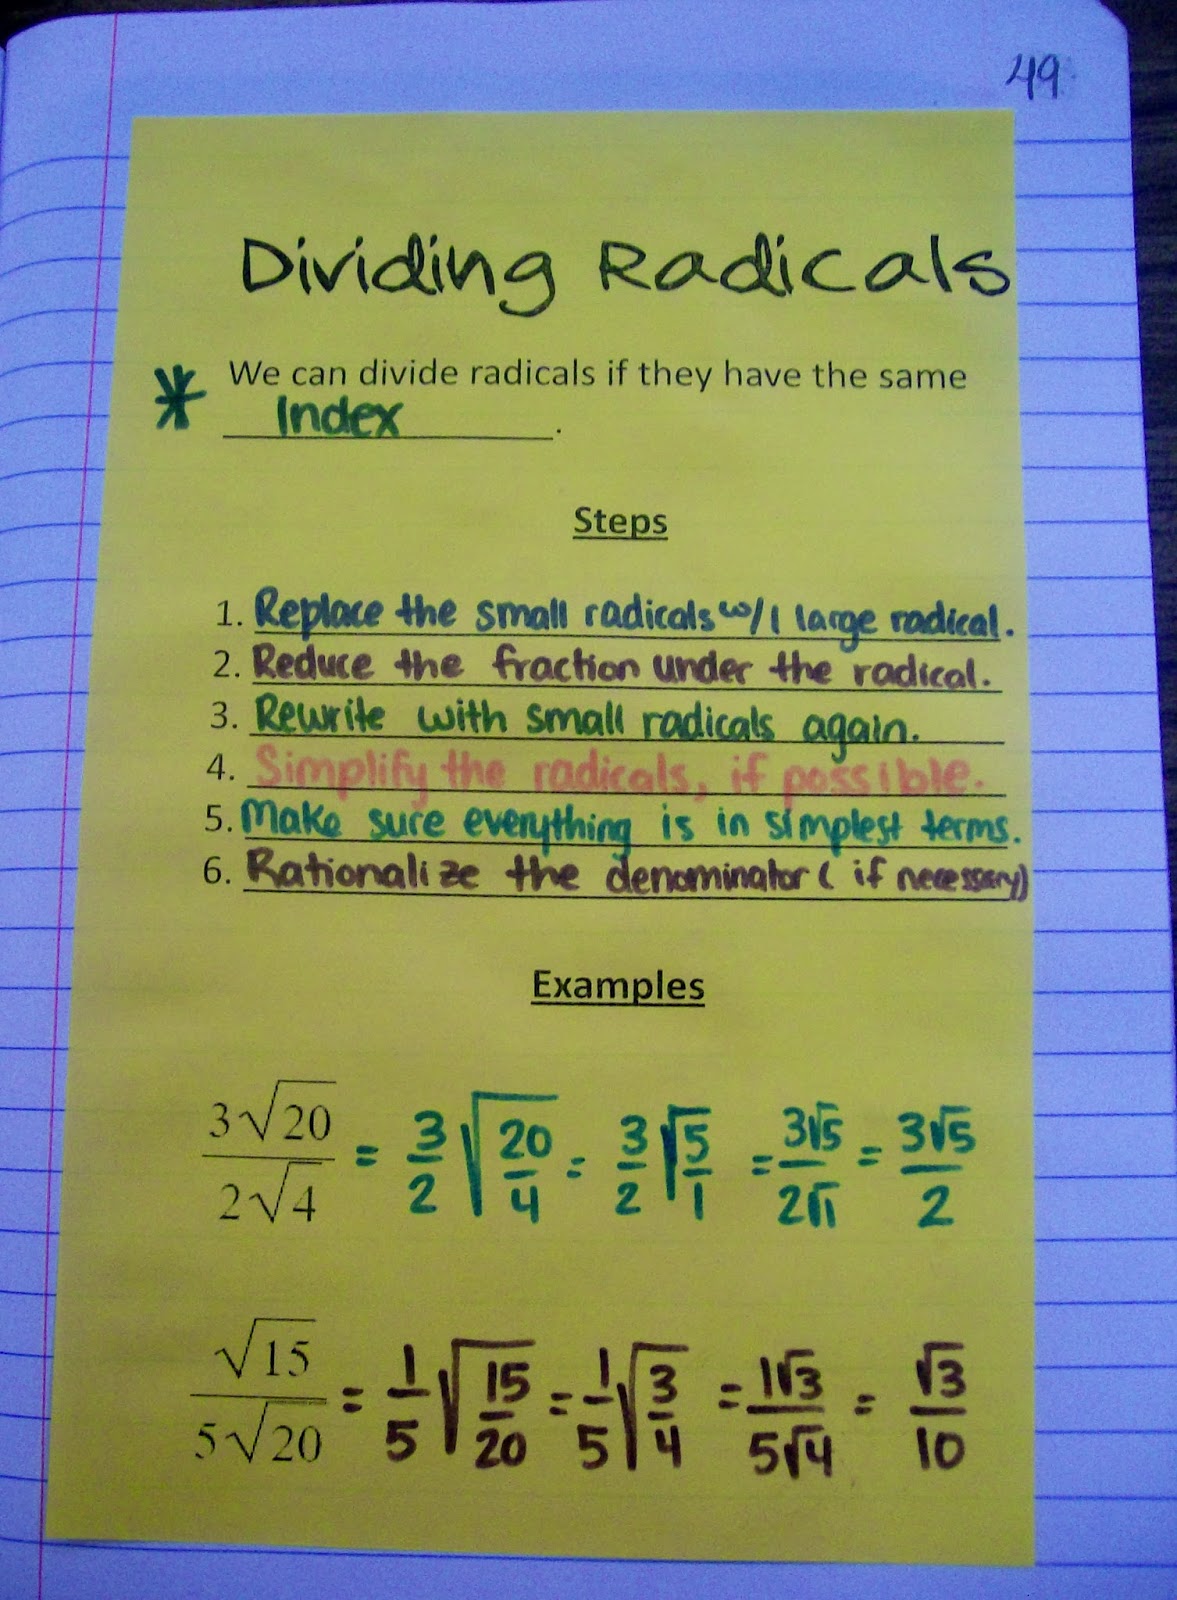 49
Dividing Radicals
* We can divide radicals if they have the same
Index.
Steps
1. Replace the small radicals w/ 1 large radical.
2. Reduce the fraction under the radical.
3. Rewrite with small radicals again.
4. Simplify the radicals, if possible.
5. Make sure everything is in simplest terms.
6. Rationalize the denominator (if necessary)
Examples
3√20 / 2√4 = 3/2 √(20/4) = 3/2 √(5/1) = 3√5 / 2√1 = 3√5 / 2
√15 / 5√20 = 1/5 √(15/20) = 1/5 √(3/4) = 1√3 / 5√4 = √3 / 10